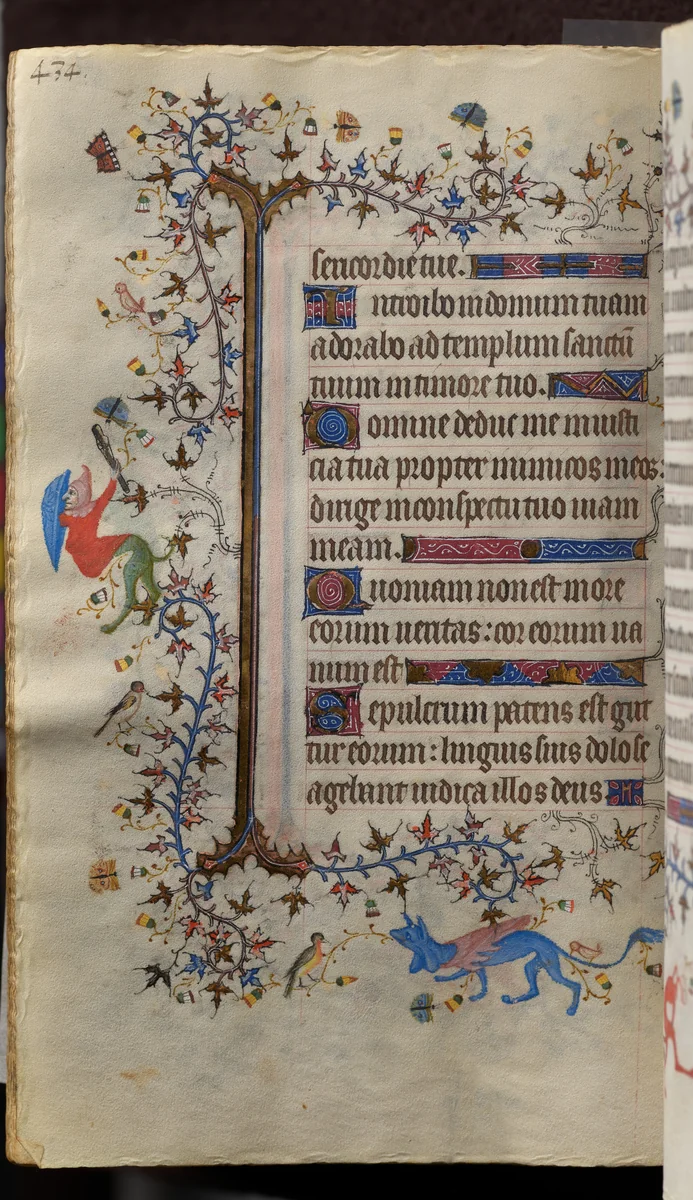 434.
sericordie tue.
Introibo in domum tuam
adorabo ad templum sanctū
tuum in timore tuo.
Domine deduc me in iusti
cia tua propter inimicos meos:
dirige in conspectu tuo uiam
meam.
Quoniam non est in ore
eorum ueritas: cor eorum ua
num est
Sepulcrum patens est gut
tur eorum: linguis suis dolose
agebant iudica illos deus